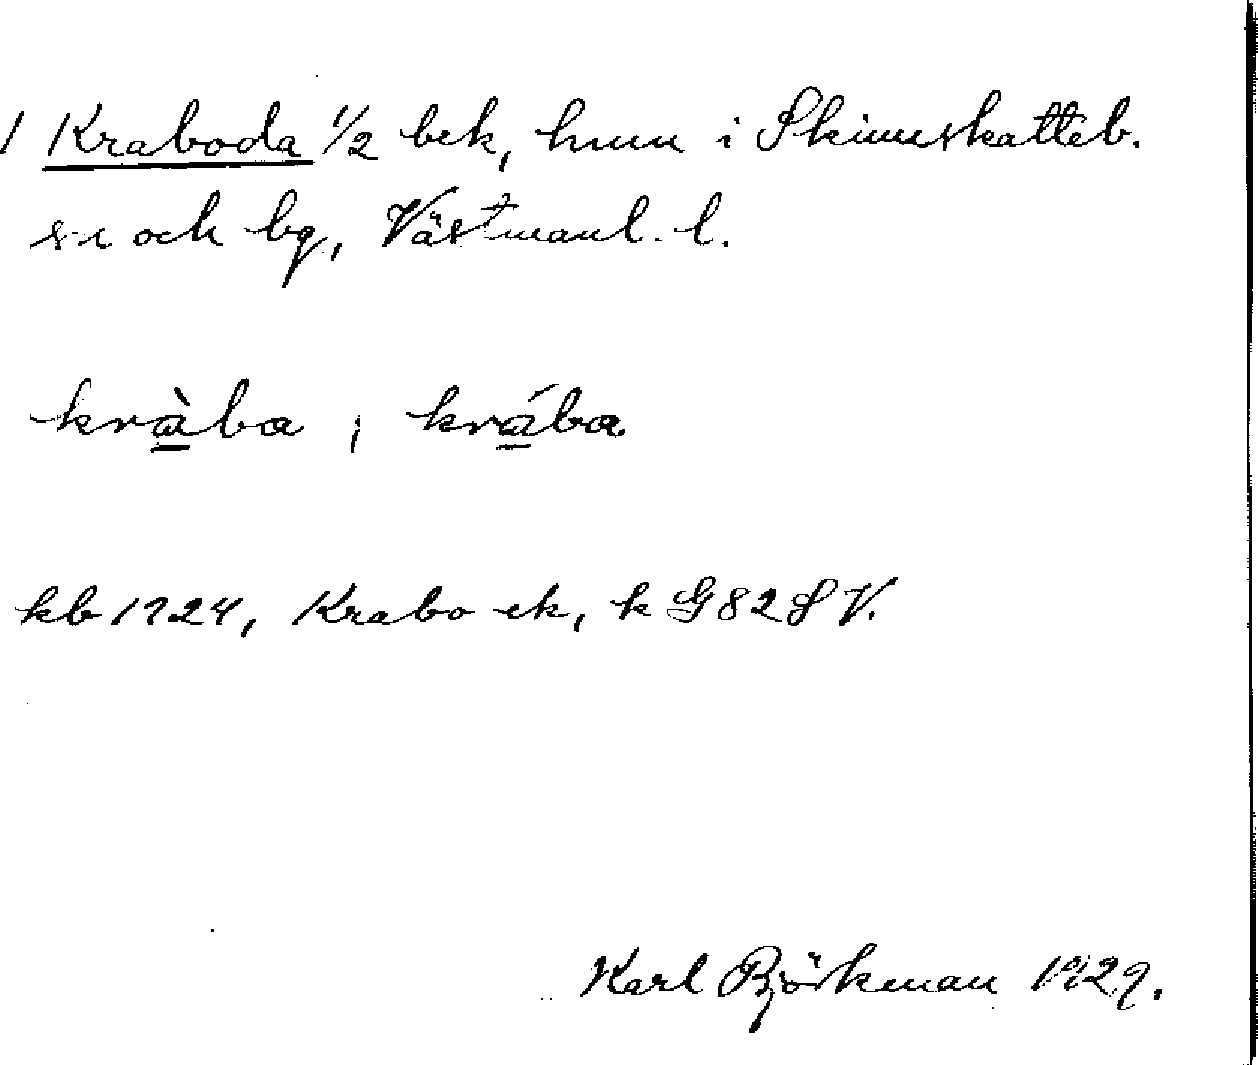 1 Kraboda 1/2 bek, hmn i Skinnskatteb.
s-n och bg, Västmanl. l.
kràba ; krába
kb 1724, Krabo ek, k G 82 S V.
Karl Björkman 1929.